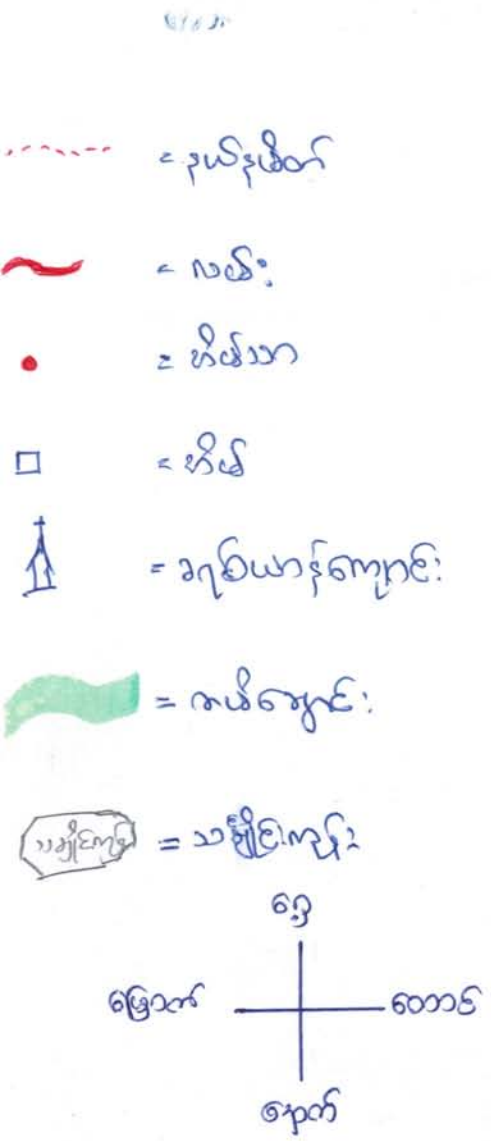 = နယ်နမိတ်
= လမ်း
= အိမ်သာ
= အိမ်
= ခရစ်ယာန်ကျောင်း
= ကမ်းချောင်း
သချိုင်းကုန်း = သချိုင်းကုန်း
ရှေ့
မြောက် တောင်
နောက်